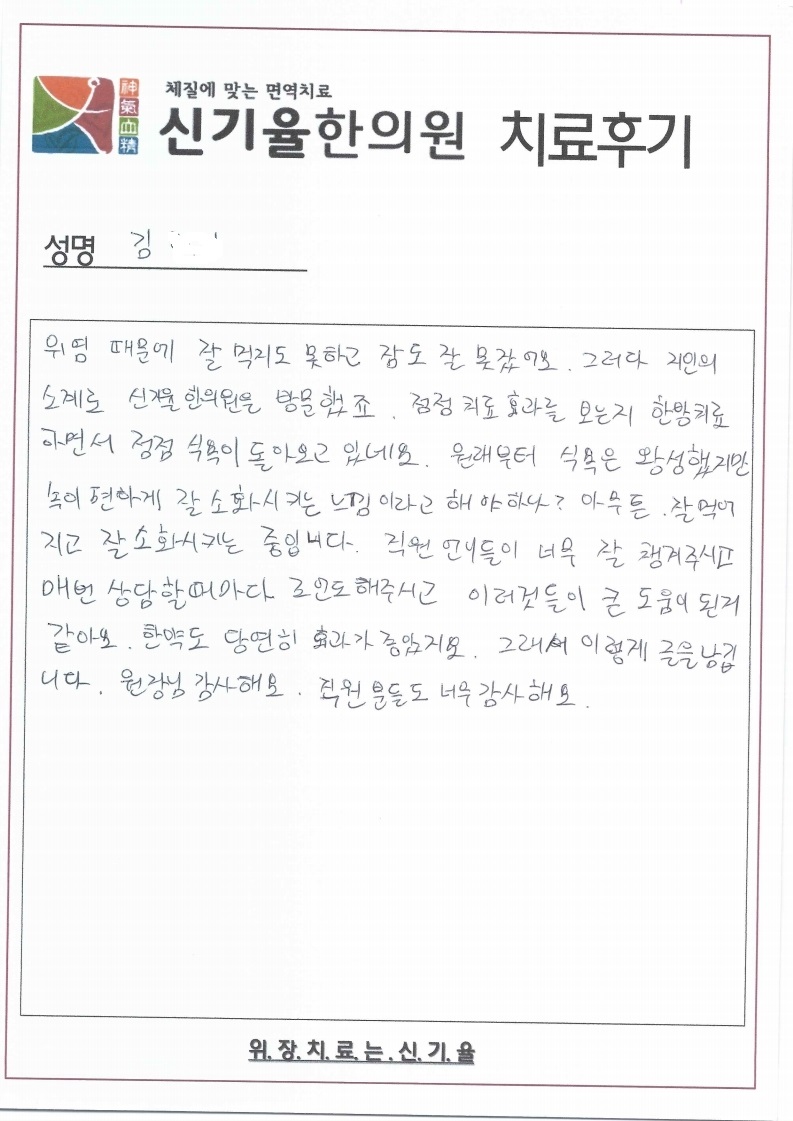 체질에 맞는 면역치료
神氣血精
신기율한의원 치료후기
성명 김
위염 때문에 잘 먹지도 못하고 잠도 잘 못잤어요. 그러다 지인의
소계로 신기율한의원은 방문했죠. 점점 치료효과를 보는지 한방치료
하면서 점점 식욕이 돌아오고 있네요. 원래부터 식욕은 왕성했지만
속이 편하게 잘 소화시키는 느낌이라고 해야하나? 아무튼. 잘먹어
지고 잘소화시키는 중입니다. 직원 언니들이 너무 잘 챙겨주시고
매번 상담할때마다 조언도해주시고 이러것들이 큰 도움이 된거
같아요. 한약도 당연히 효과가 좋았지요. 그래서 이렇게 글을남깁
니다. 원장님 감사해요. 직원분들도 너무감사해요.
위.장.치.료.는.신.기.율